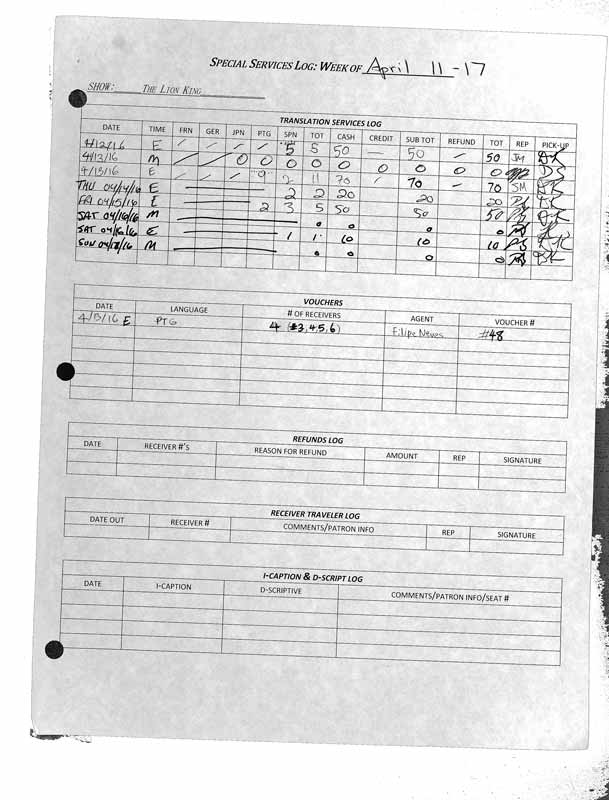 SPECIAL SERVICES LOG: WEEK OF April 11-17
SHOW: THE LION KING
TRANSLATION SERVICES LOG
DATE TIME FRN GER JPN PTG SPN TOT CASH CREDIT SUB TOT REFUND TOT REP PICK-UP
4/12/16 E / / / / 5 5 50 50 — 50 JM
4/13/16 M / / 0 0 0 0 0 0 0 0 0
4/13/16 E / / / 9 2 11 70 / 70 — 70 SM
THU 04/14/16 E 2 2 20 20 20
FRI 04/15/16 E 2 3 5 50 50 50
SAT 04/16/16 M 0 0 0 0
SAT 04/16/16 E 1 1 10 10 10
SUN 04/17/16 M 0 0 0 0
VOUCHERS
DATE LANGUAGE # OF RECEIVERS AGENT VOUCHER #
4/13/16 E PTG 4 (#3,4,5,6) Filipe Neves #48
REFUNDS LOG
DATE RECEIVER #'S REASON FOR REFUND AMOUNT REP SIGNATURE
RECEIVER TRAVELER LOG
DATE OUT RECEIVER # COMMENTS/PATRON INFO REP SIGNATURE
I-CAPTION & D-SCRIPT LOG
DATE I-CAPTION D-SCRIPTIVE COMMENTS/PATRON INFO/SEAT #